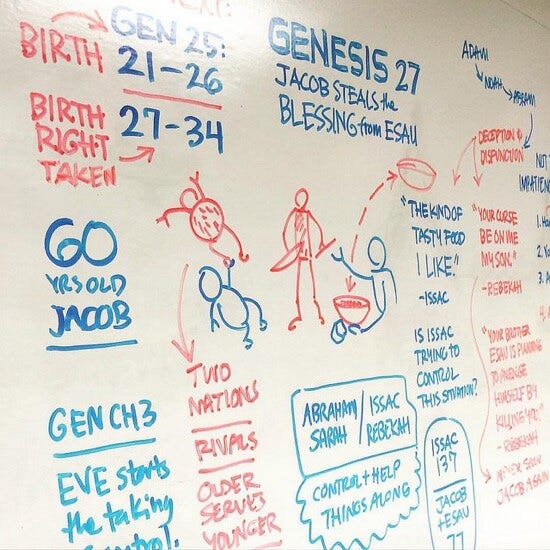 NEXT:
BIRTH
GEN 25:
21-26
BIRTH
RIGHT
TAKEN
27-34
GENESIS 27
JACOB STEALS the
BLESSING from ESAU
ADAM
NOAH
ABRAM
DECEPTION +
DISFUNCTION
60
YRS OLD
JACOB
"THE KIND OF
TASTY FOOD
I LIKE."
-ISSAC
IS ISSAC
TRYING TO
CONTROL
THIS SITUATION?
"YOUR CURSE
BE ON ME
MY SON."
-REBEKAH
"YOUR BROTHER
ESAU IS PLANNING
TO AVENGE
HIMSELF BY
KILLING YOU."
-REBEKAH
NEVER SEEN
JACOB AGAIN
TWO
NATIONS
RIVALS
OLDER
SERVES
YOUNGER
GEN CH3
EVE starts
the taking
control.
ABRAHAM / ISSAC
SARAH / REBEKAH
CONTROL + HELP
THINGS ALONG
ISSAC
137
JACOB
+ ESAU
77
1.
2.
3.
4.